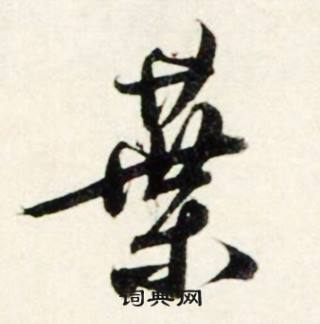 葉
词典网